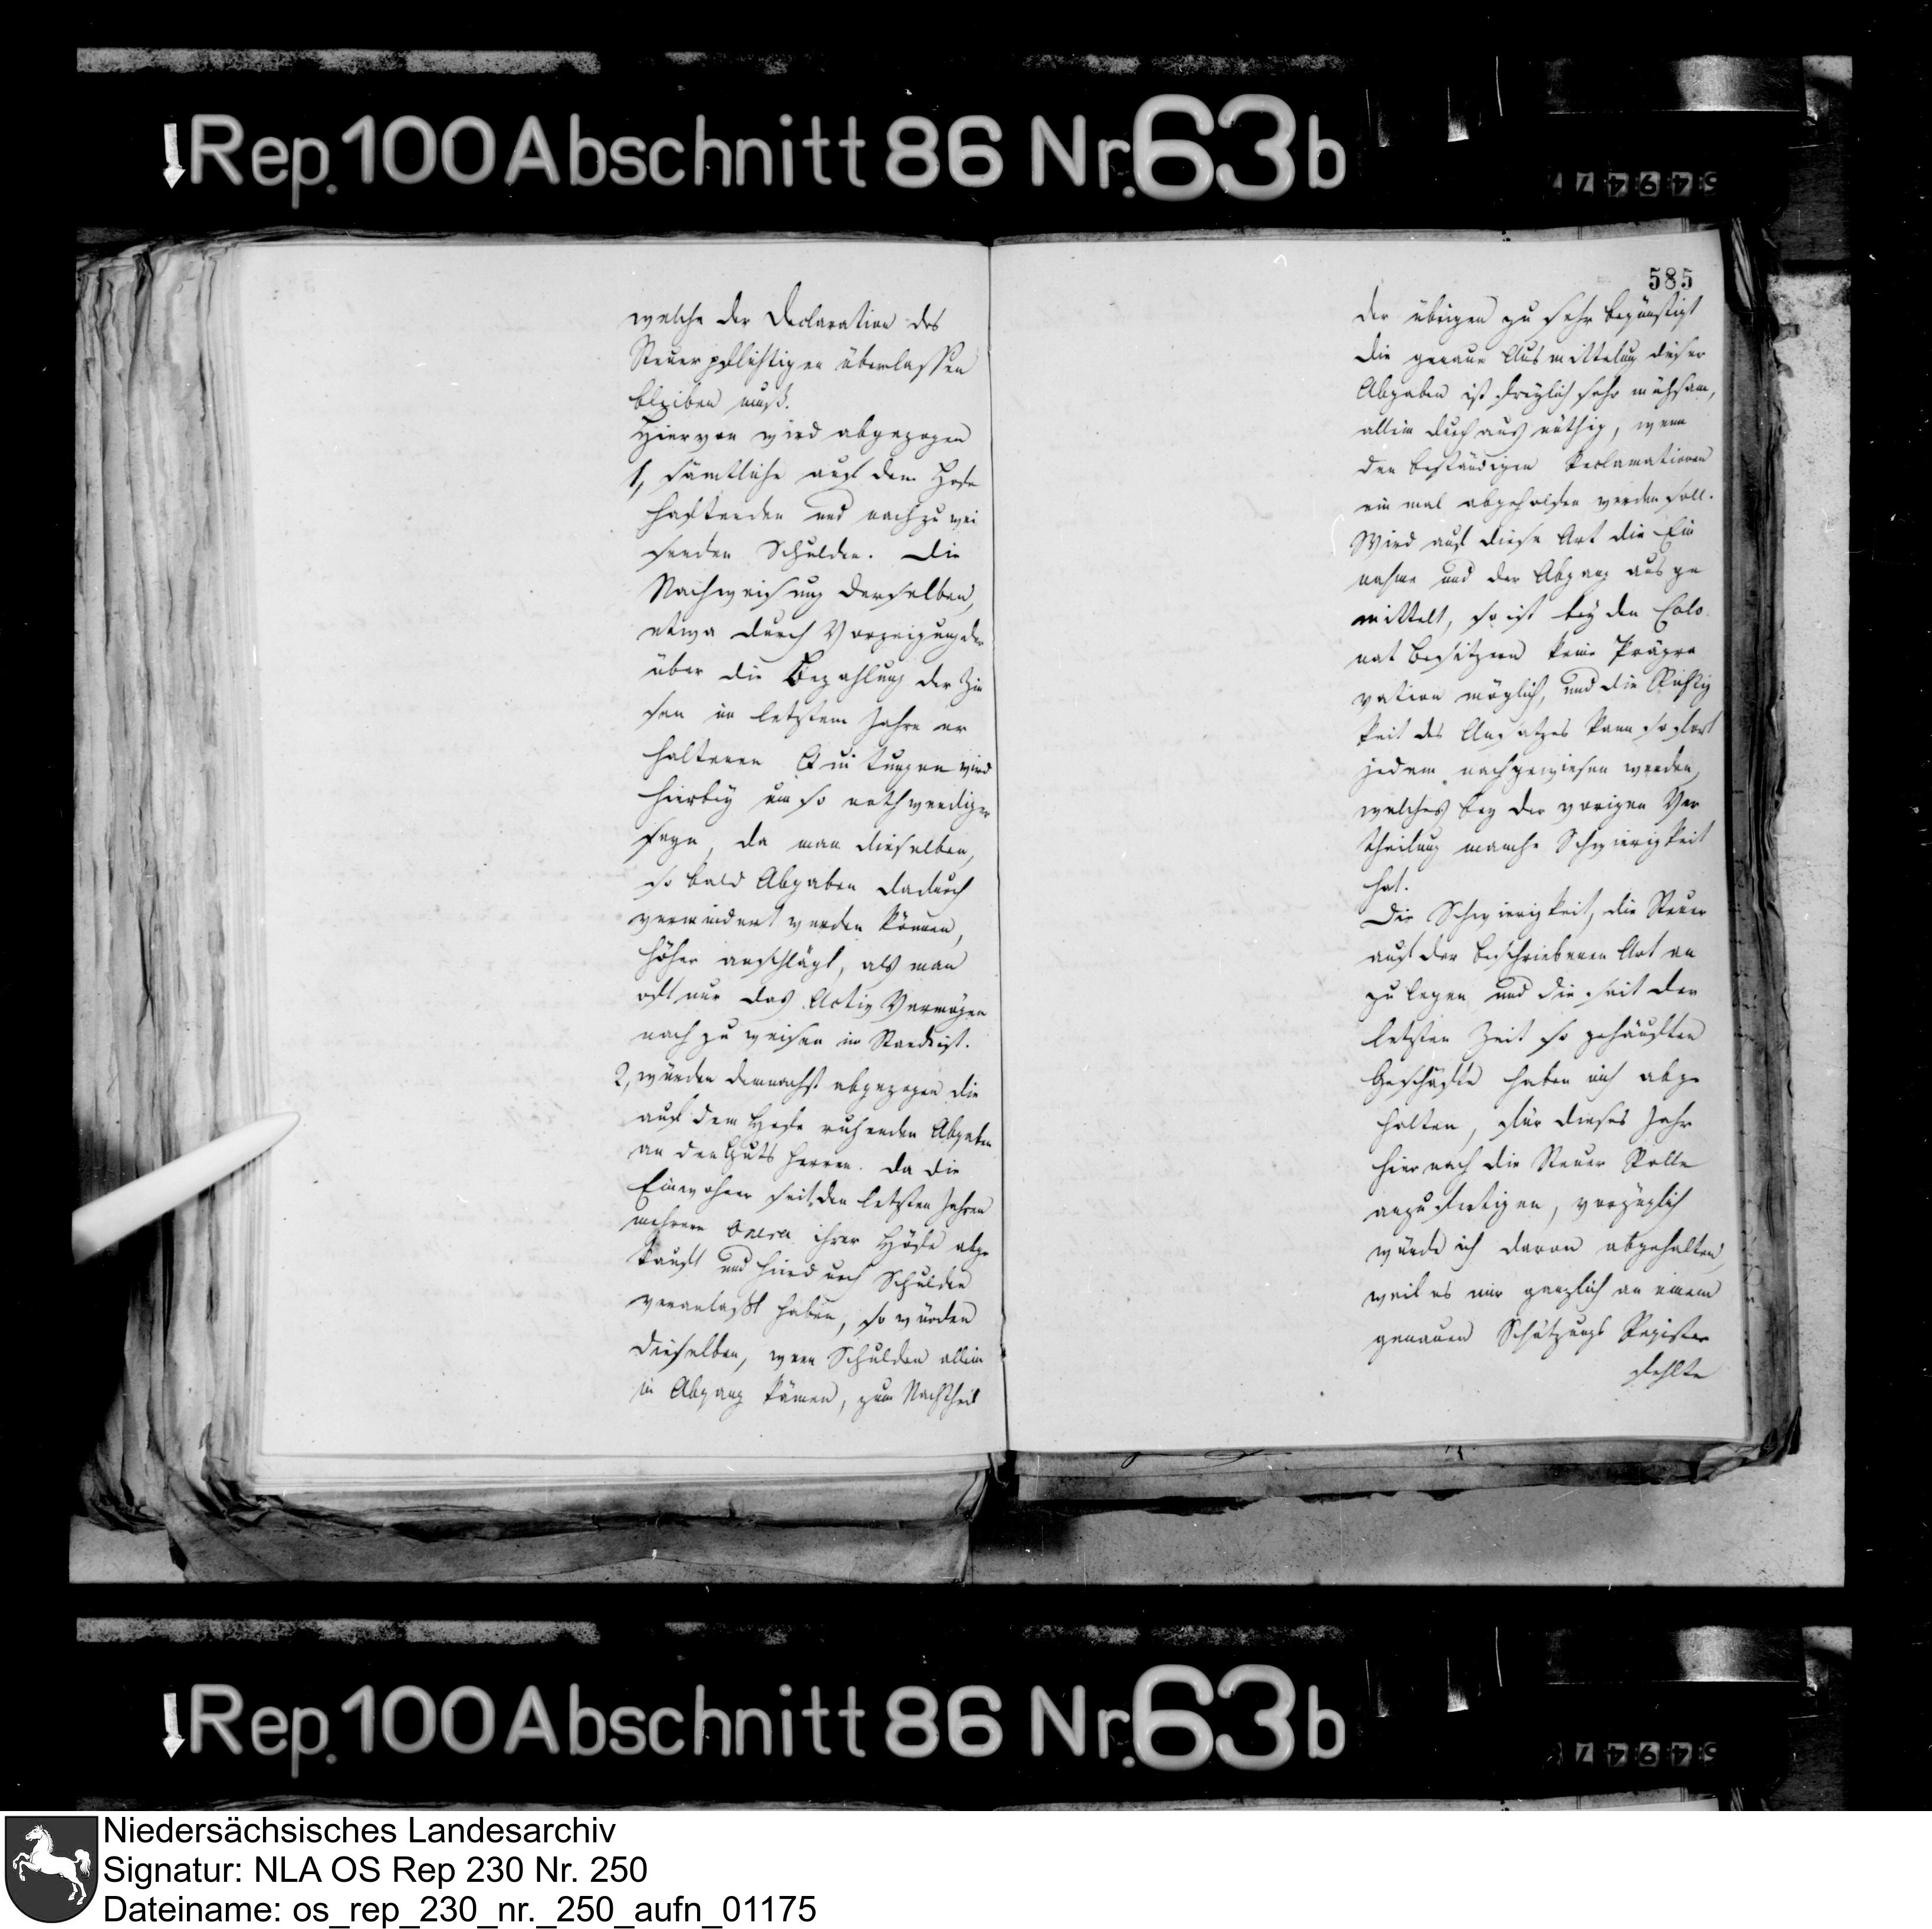 Rep. 100 Abschnitt 86 Nr. 63b
welche der Declaration des
Steuerpflichtigen überlassen
bleiben muß.
Hiervon wird abgezogen
1, sämtliche auf dem Hofe
haftenden und nachzuwei
senden Schulden. Die
Nachweisung derselben,
etwa durch Vorzeigung der
über die Bezahlung der Zin
sen im letztem Jahre er
haltenen Quitungen wird
hierbey um so nothwendiger
seyn, da man dieselben,
so bald Abgaben dadurch
vermindert werden können,
höher anschlägt, als man
oft nur das Activ Vermögen
nach zu weisen im Stande ist.
2, würden demnachst abgezogen die
auf dem Hofe ruhenden Abgaben
an den Guts Herren. Da die
Einwohner seit den letzten Jahren
mehrere Onera ihrer Höfe abge
kauft und hierdurch Schulden
veranlaßt haben, so würden
dieselben, wenn Schulden allein
in Abgang kämen, zum Nachtheil
585
der übrigen zu sehr begünstigt
Die genaue Ausmittelung dieser
Abgaben ist freylich sehr mühsam,
allein durchaus nöthig, wenn
den beständigen Reclamationen
ein mal abgeholfen werden soll.
Wird auf diese Art die Ein
nahme und der Abgang ausge
mittelt, so ist bey den Colo
nat Besitzern keine Prägra
vation möglich, und die Richtig
keit des Ansatzes kann sofort
jedem nachgewiesen werden,
welches bey der vorigen Ver
theilung manche Schwierigkeit
hat.
Die Schwierigkeit, die Steuer
auf der beschriebenen Art an
zu legen und die seit der
letzten Zeit so gehäuften
Geschäfte haben mich abge
halten, für dieses Jahr
hiernach die Steuer Rolle
anzufertigen, vorzüglich
wurde ich davon abgehalten,
weil es mir gänzlich an einem
genauen Schatzungs Register
fehlte
Rep. 100 Abschnitt 86 Nr. 63b
Niedersächsisches Landesarchiv
Signatur: NLA OS Rep 230 Nr. 250
Dateiname: os_rep_230_nr._250_aufn_01175